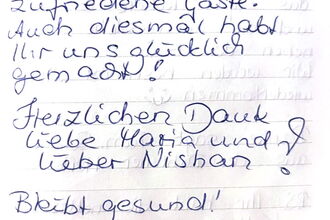 zufriedene Gäste.
Auch diesmal habt
Ihr uns glücklich
gemacht!
Herzlichen Dank
liebe Maria und
lieber Nishan!
Bleibt gesund!